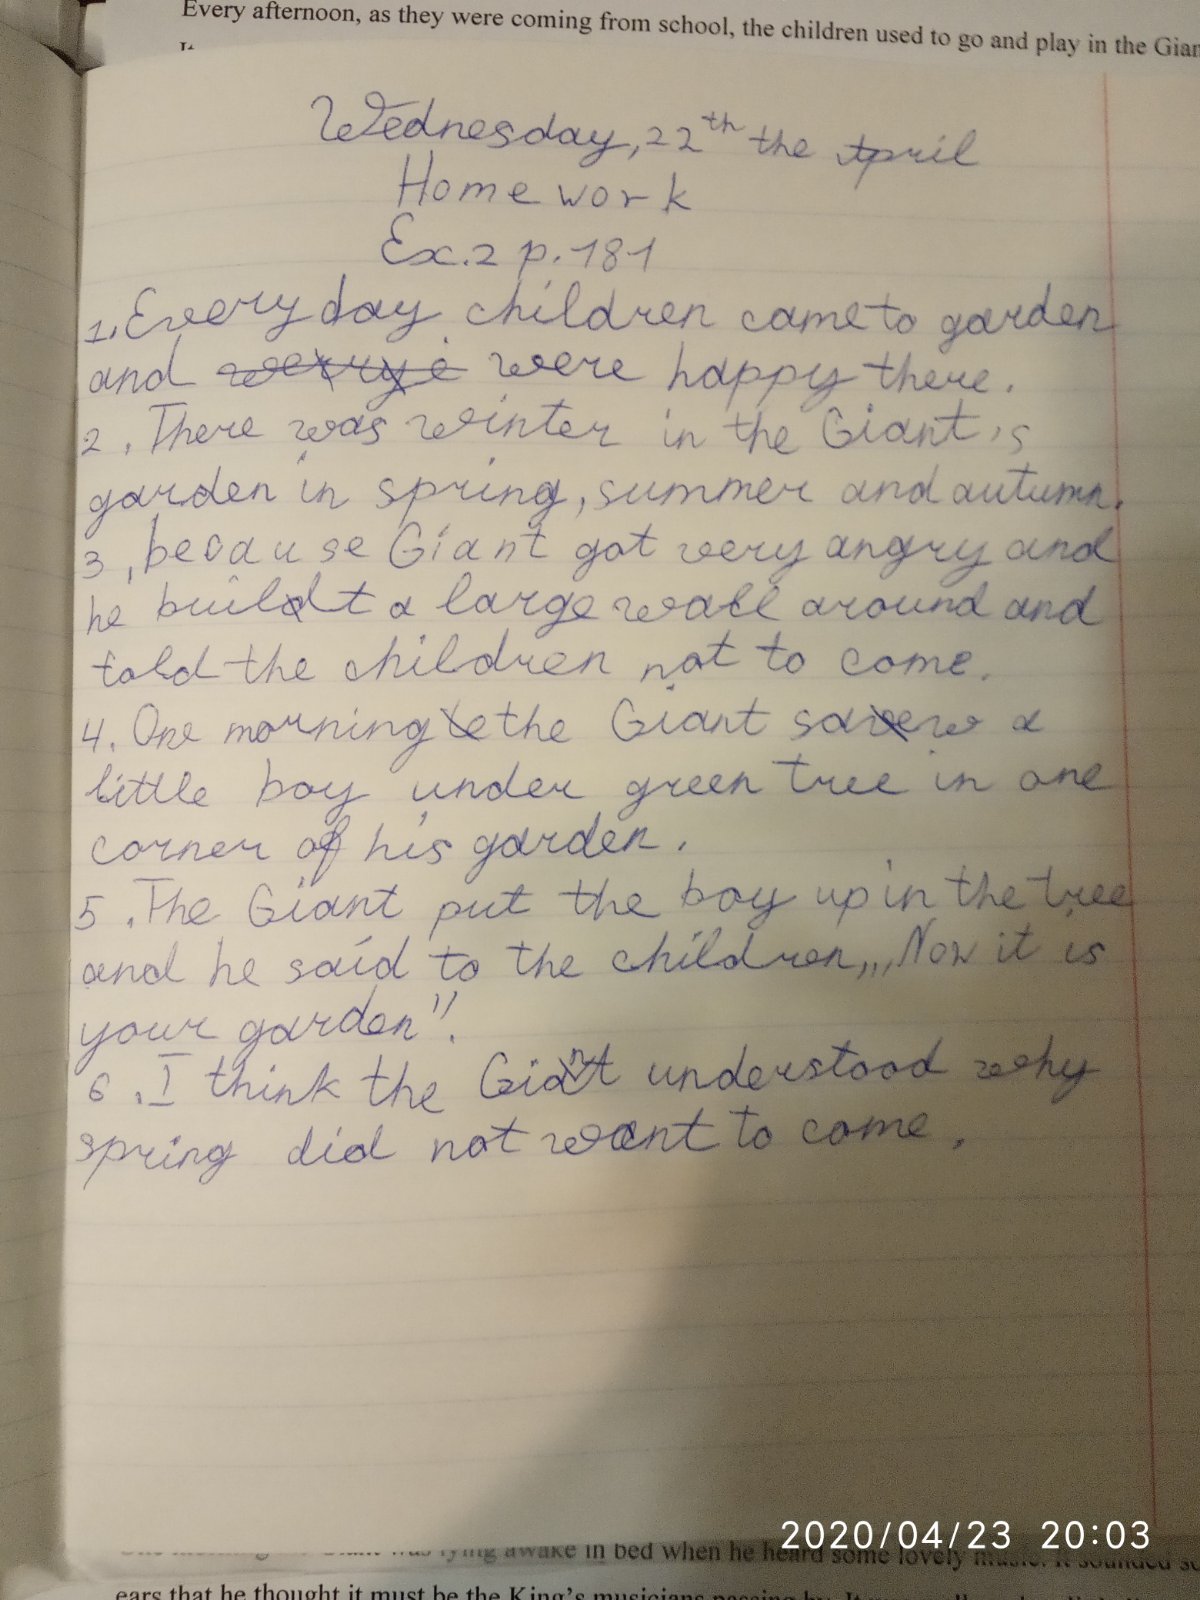 Every afternoon, as they were coming from school, the children used to go and play in the Gian
It
Wednesday, 22th the April
Homework
Ex.2 p.181
1. Every day children came to garden
and were happy there.
2. There was winter in the Giant's
garden in spring, summer and autumn.
3, because Giant got very angry and
he built a large wall around and
told the children not to come.
4. One morning the Giant saw a
little boy under green tree in one
corner of his garden.
5. The Giant put the boy up in the tree
and he said to the children,,,,Now it is
your garden".
6. I think the Giant understood why
spring did not want to come.
2020/04/23 20:03
was lying awake in bed when he heard some lovely music. It sounded
ears that he thought it must be the King's musicians passing by. It